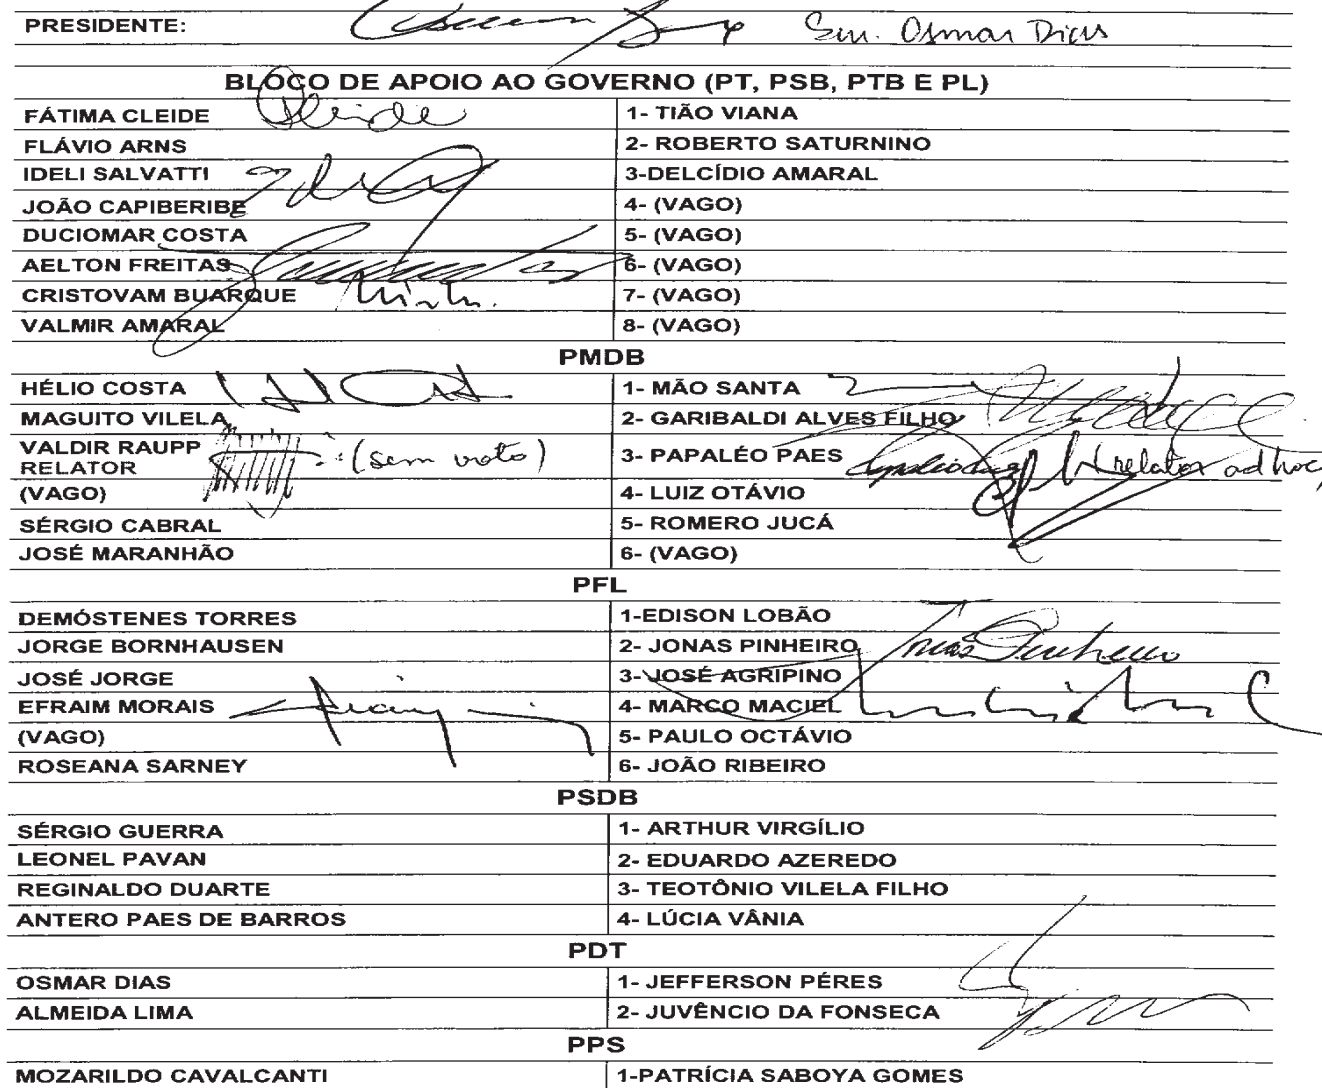 PRESIDENTE: Sen. Osmar Dias
BLOCO DE APOIO AO GOVERNO (PT, PSB, PTB E PL)
FÁTIMA CLEIDE Cleide 1- TIÃO VIANA
FLÁVIO ARNS 2- ROBERTO SATURNINO
IDELI SALVATTI 3-DELCÍDIO AMARAL
JOÃO CAPIBERIBE 4- (VAGO)
DUCIOMAR COSTA 5- (VAGO)
AELTON FREITAS 6- (VAGO)
CRISTOVAM BUARQUE 7- (VAGO)
VALMIR AMARAL 8- (VAGO)
PMDB
HÉLIO COSTA 1- MÃO SANTA
MAGUITO VILELA 2- GARIBALDI ALVES FILHO
VALDIR RAUPP
RELATOR (sem voto) 3- PAPALÉO PAES relator ad hoc
(VAGO) 4- LUIZ OTÁVIO
SÉRGIO CABRAL 5- ROMERO JUCÁ
JOSÉ MARANHÃO 6- (VAGO)
PFL
DEMÓSTENES TORRES 1-EDISON LOBÃO
JORGE BORNHAUSEN 2- JONAS PINHEIRO Jonas Pinheiro
JOSÉ JORGE 3- JOSÉ AGRIPINO
EFRAIM MORAIS 4- MARCO MACIEL
(VAGO) 5- PAULO OCTÁVIO
ROSEANA SARNEY 6- JOÃO RIBEIRO
PSDB
SÉRGIO GUERRA 1- ARTHUR VIRGÍLIO
LEONEL PAVAN 2- EDUARDO AZEREDO
REGINALDO DUARTE 3- TEOTÔNIO VILELA FILHO
ANTERO PAES DE BARROS 4- LÚCIA VÂNIA
PDT
OSMAR DIAS 1- JEFFERSON PÉRES
ALMEIDA LIMA 2- JUVÊNCIO DA FONSECA
PPS
MOZARILDO CAVALCANTI 1-PATRÍCIA SABOYA GOMES